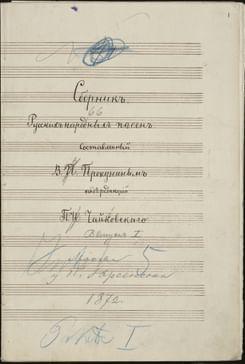 1
Сборникъ
66
Русскихъ народныхъ пѣсенъ
составленный
В. П. Прокунинымъ
подъ редакціей
П. И. Чайковскаго
Выпускъ I
Москва 5
у П. Юргенсона
1872
I